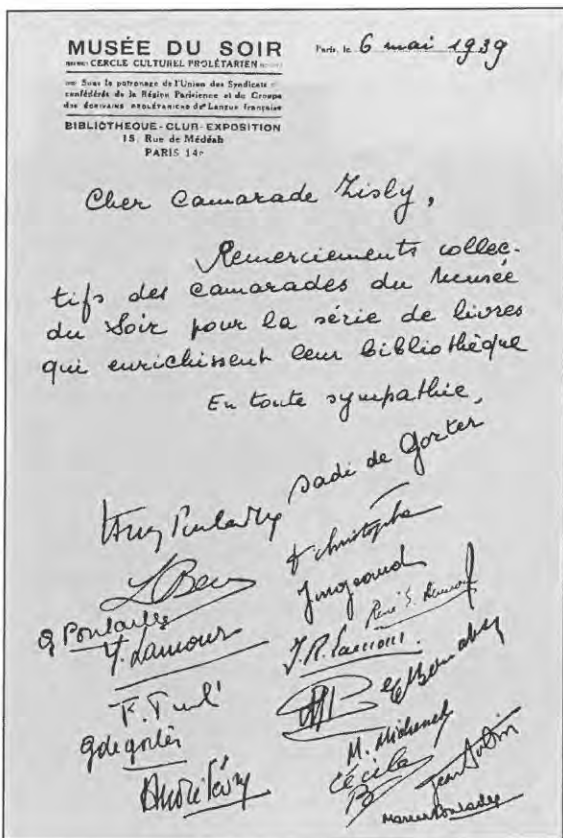 MUSÉE DU SOIR
CERCLE CULTUREL PROLÉTARIEN
Sous le patronage de l'Union des Syndicats
confédérés de la Région Parisienne et du Groupe
des ÉCRIVAINS PROLÉTARIENS de Langue française
BIBLIOTHEQUE-CLUB-EXPOSITION
15, Rue de Médéah
PARIS 14e
Paris, le 6 mai 1939
Cher Camarade Zisly,
Remerciements collec-
tifs des camarades du Musée
du Soir pour la série de livres
qui enrichissent leur bibliothèque
En toute sympathie,
Sadi de Gorter
Christophe
G Poulaille
Y. Lamour
G de gorter
M. Michenel
Cécile